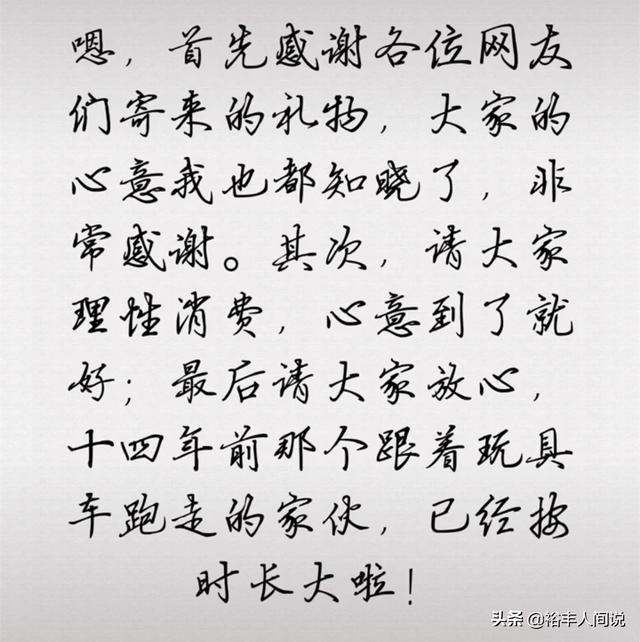 嗯，首先感谢各位网友
们寄来的礼物，大家的
心意我也都知晓了，非
常感谢。其次，请大家
理性消费，心意到了就
好；最后请大家放心，
十四年前那个跟着玩具
车跑走的家伙，已经按
时长大啦！
头条 @裕丰人间说